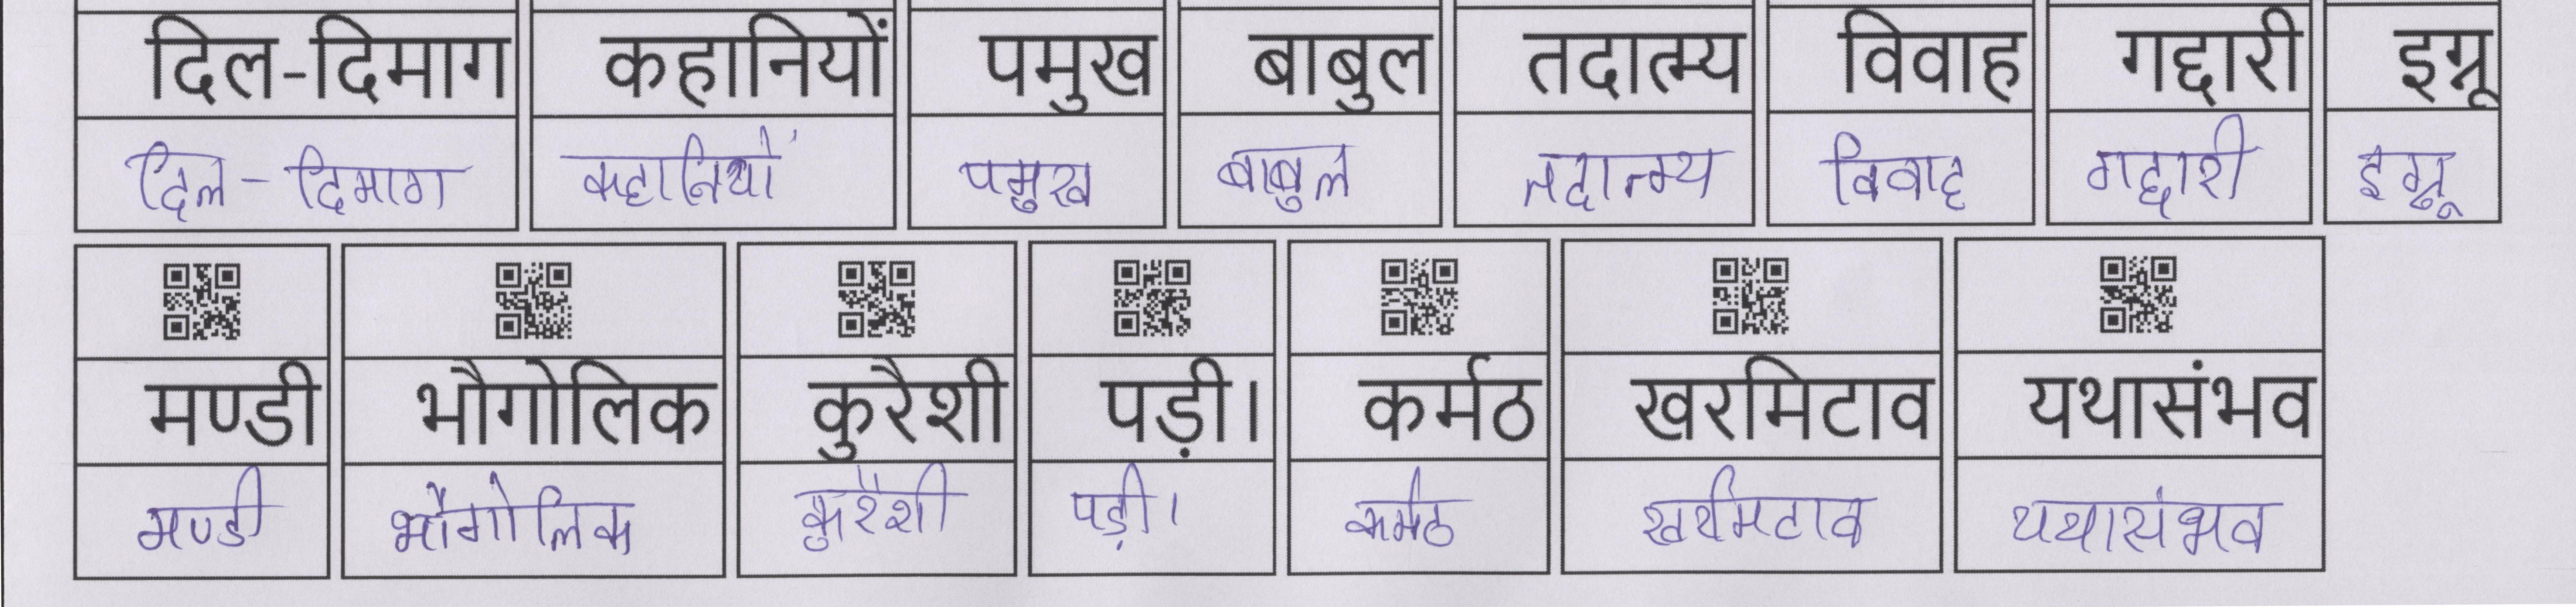 दिल-दिमाग कहानियों पमुख बाबुल तदात्म्य विवाह गद्दारी इग्नू
दिल-दिमाग कहानियों पमुख बाबुल तदात्म्य विवाह गद्दारी इग्नू
मण्डी भौगोलिक कुरैशी पड़ी। कर्मठ खरमिटाव यथासंभव
मण्डी भौगोलिक कुरैशी पड़ी। कर्मठ खरमिटाव यथासंभव